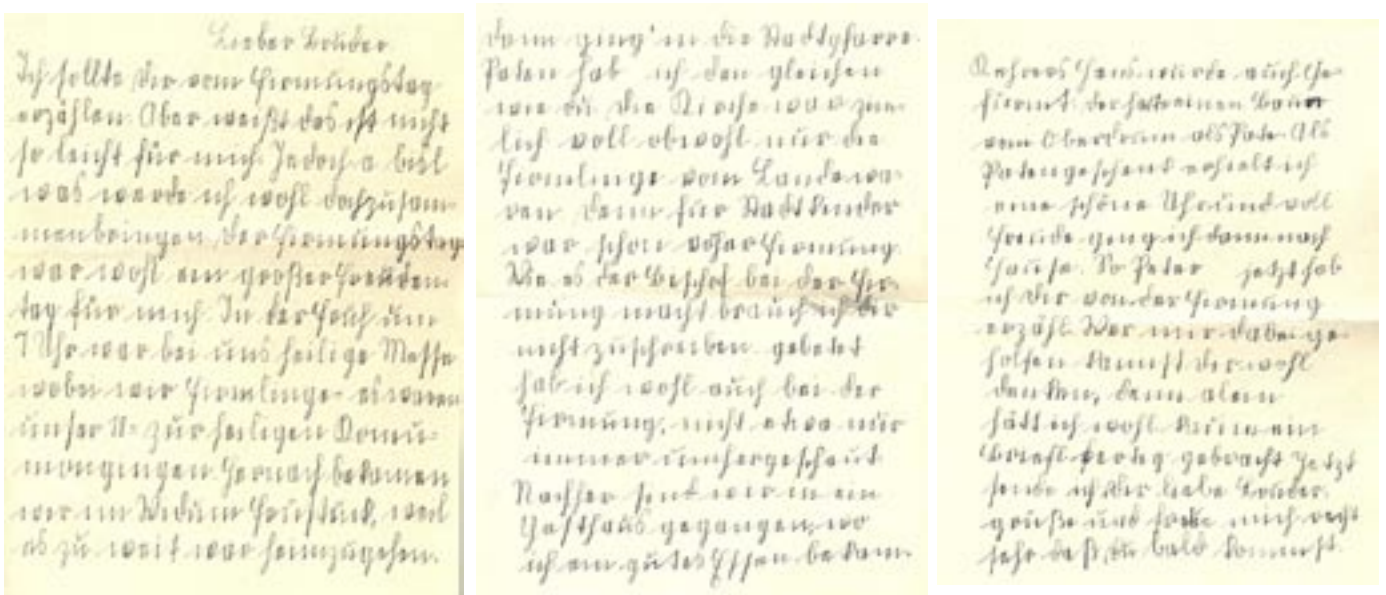 Lieber Bruder
Ich sollte dir vom Firmungstag
erzählen. Aber weißt das ist nicht
so leicht für mich. Jedoch a bisl
was werde ich wohl doch zusam-
menbringen. Der Firmungstag
war wohl ein großer Freuden-
tag für mich. In der Früh um
7 Uhr war bei uns heilige Messe
wobei wir Firmlinge es waren
unser 11 zur heiligen Komu-
nion gingen. Hernach bekamen
wir im Widum Frustuck, weil
es zu weit war heimzugehen.
dann ging' in die Stadtpfarre.
Paten hab ich den gleichen
wie du die Kirche war ziem-
lich voll obwohl nur die
Firmlinge vom Lande wa-
ren. Denn für Stadtkinder
war schon Firmung.
Wie es der Bischof bei der Fir-
mung macht brauch ich dir
nicht zuschreiben. gebetet
hab ich wohl auch bei der
Firmung, nicht etwa nur
immer umhergeschaut
Nachher sind wir in ein
Gasthaus gegangen, wo
ich ein gutes Essen bekam.
Hans wurde auch ge-
firmt. der hatte einen Bauer
vom als Pate. Als
Patengeschenk erhielt ich
eine schöne Uhr und voll
Freude ging ich dann nach
Hause. So Peter jetzt hab
ich dir von der Firmung
erzähl. Wer mir dabei ge-
holfen kannst dir wohl
denken, denn alein
hätt ich wohl kaum ein
Briefl fertig gebracht. Jetzt
sende ich dir liebe Bruder
grüße und freue mich recht
sehr daß du bald kommst.